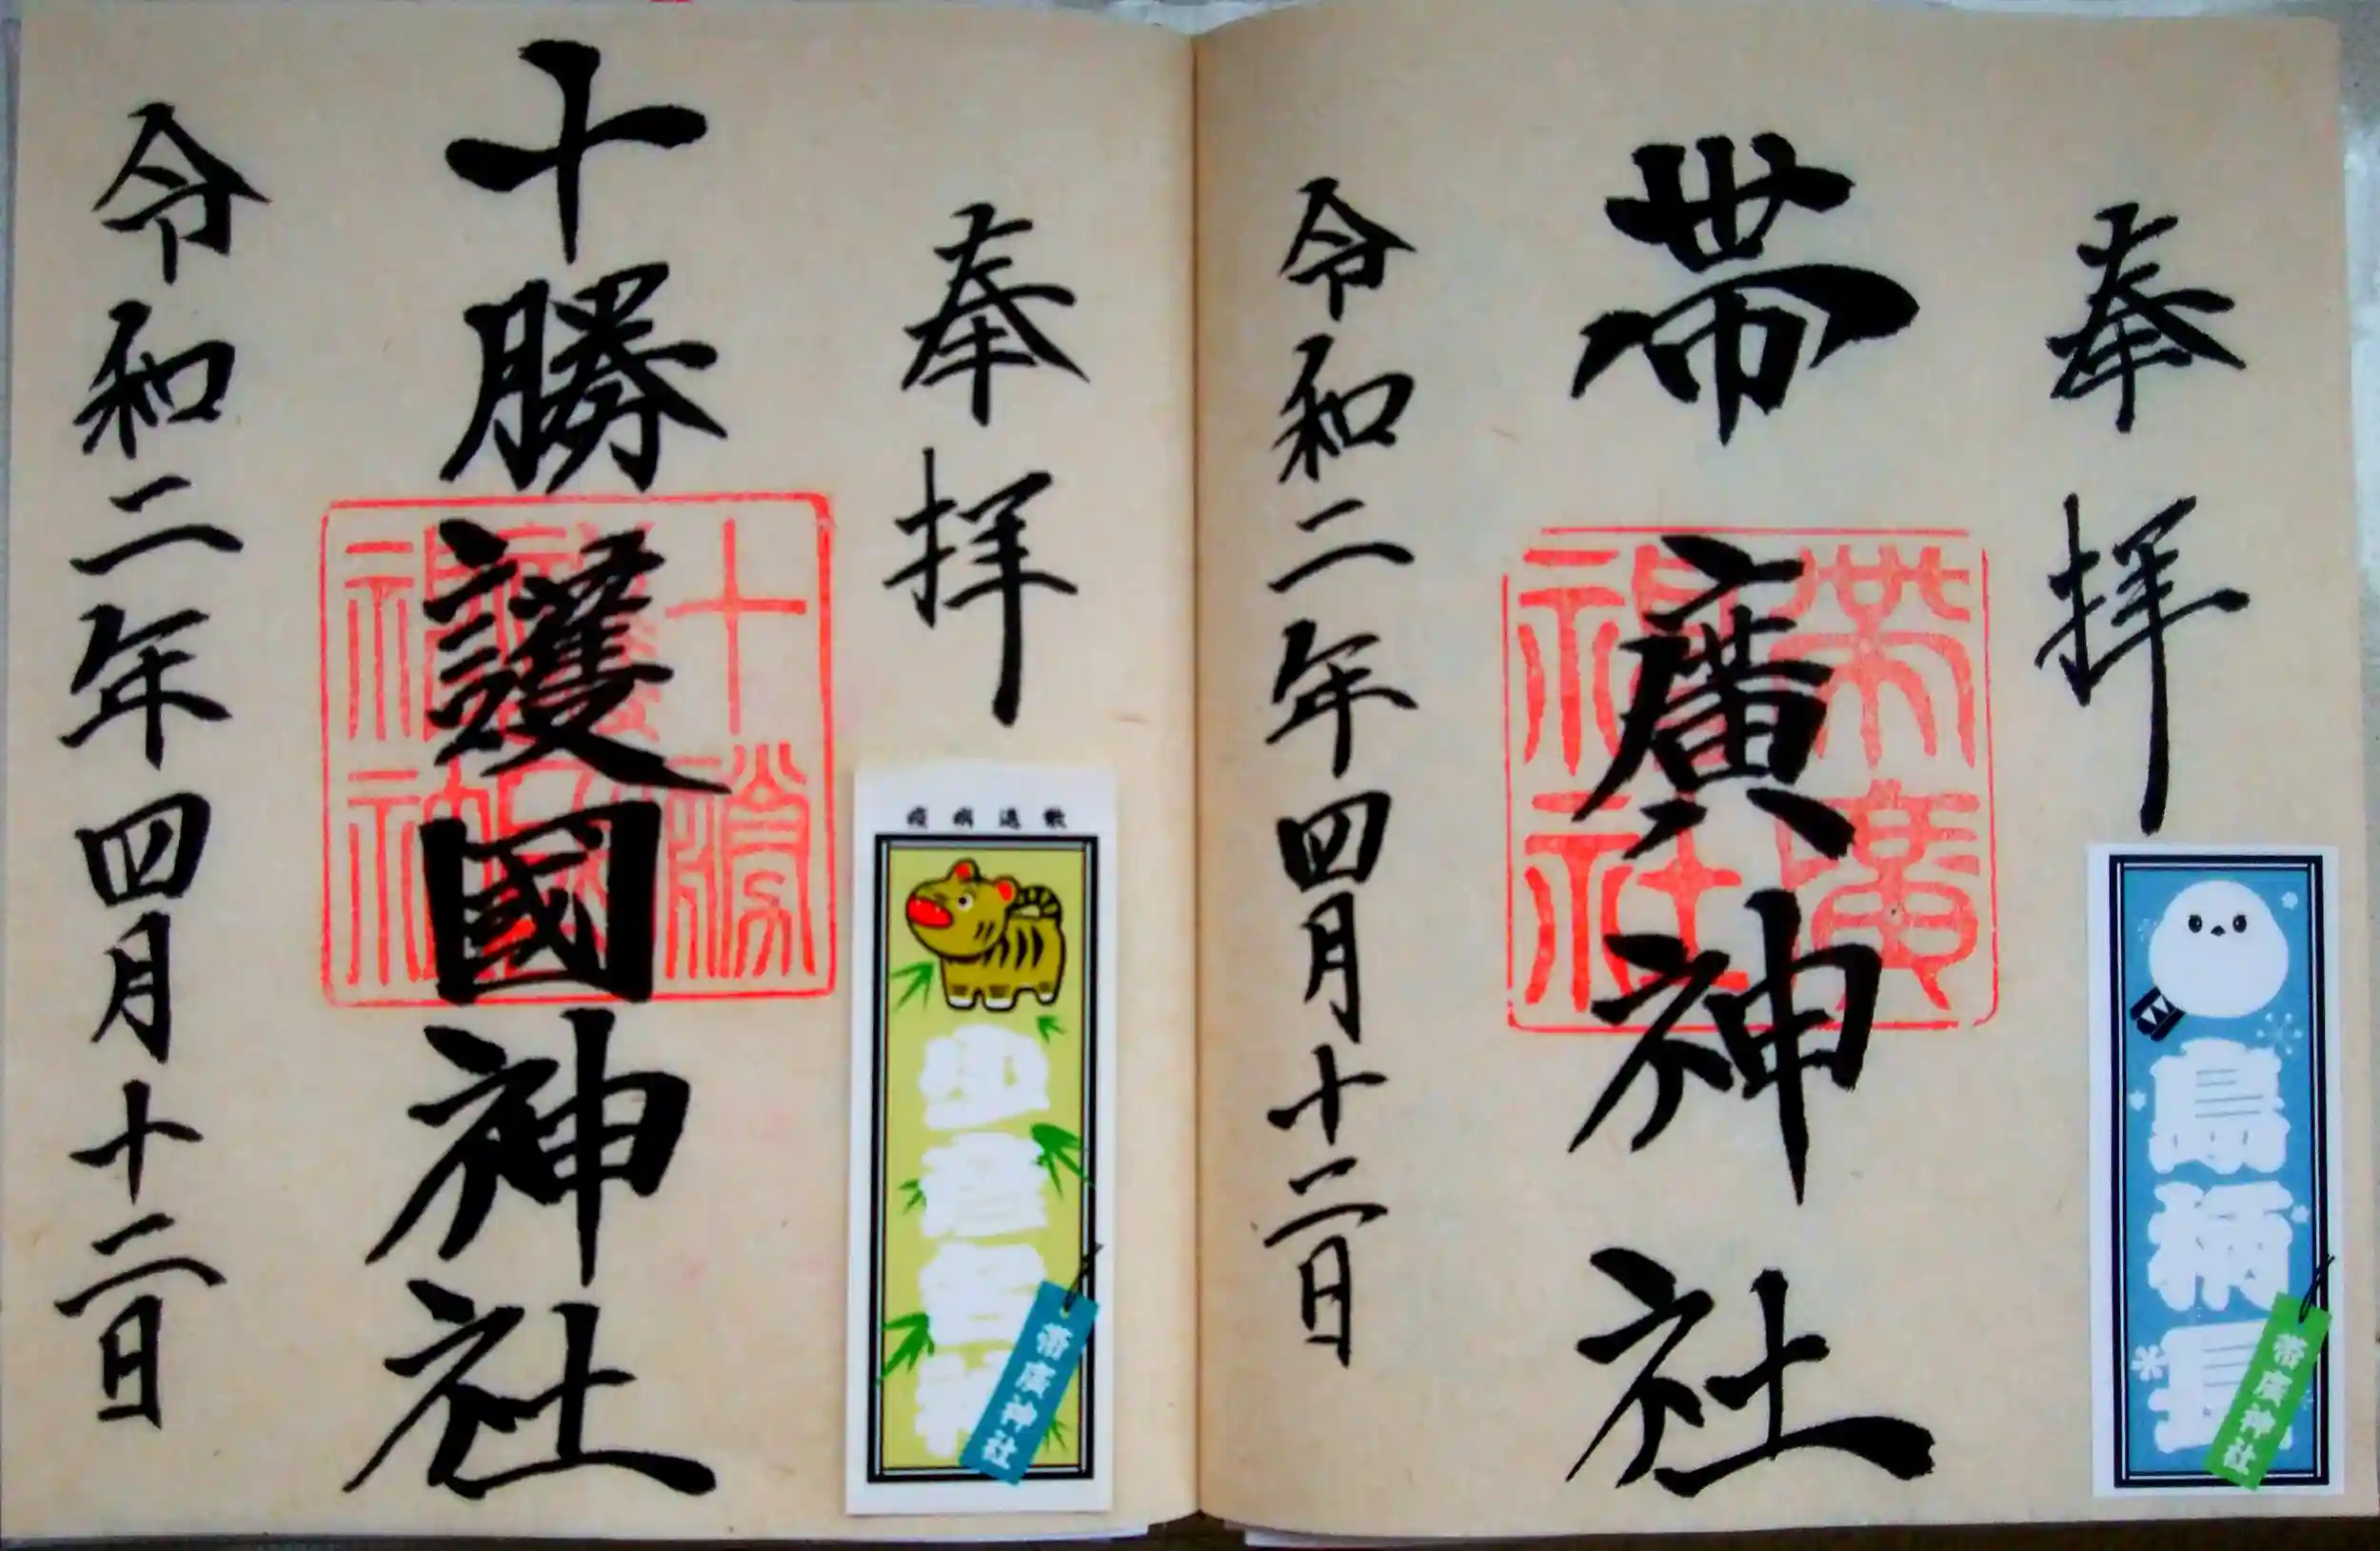 奉拝
帯廣神社
帯廣神社
令和二年四月十二日
島柄長
帯廣神社
奉拝
十勝護國神社
令和二年四月十二日
疫病退散
帯廣神社